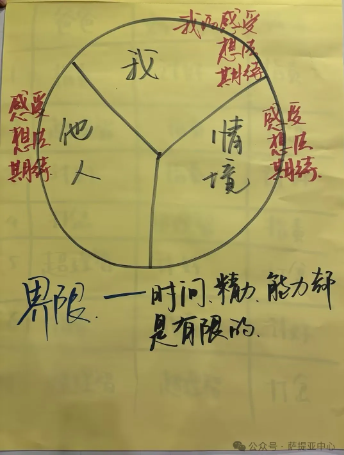 我的感受
想法
期待
我
感受
想法
期待
他人
情境
感受
想法
期待
界限.——时间、精力、能力都
是有限的.
公众号·萨提亚中心